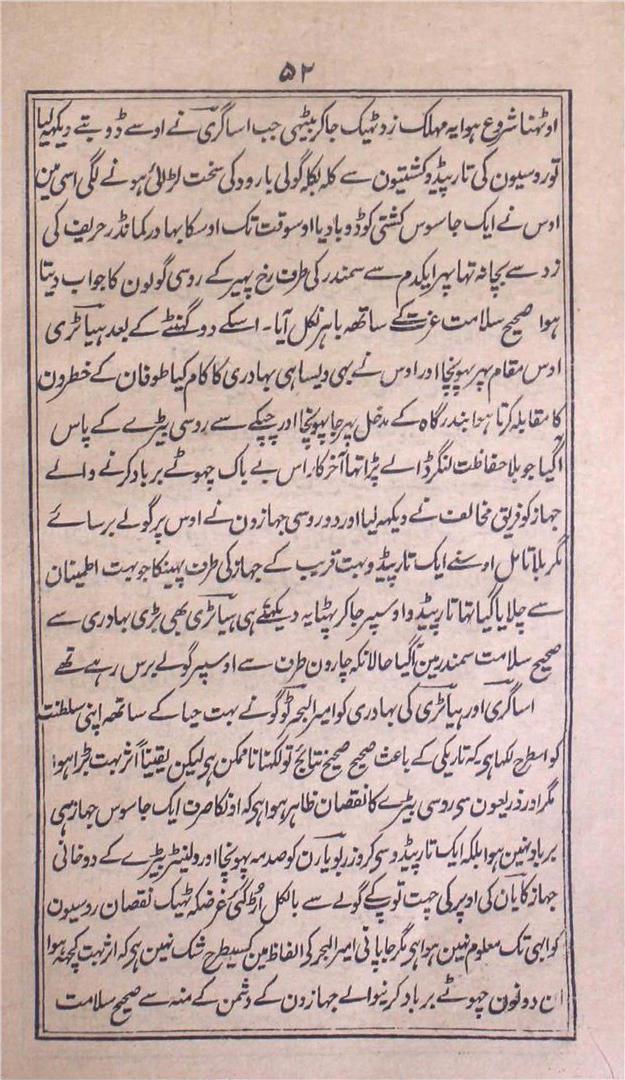 ۵۲
اوٹھنا شروع ہوا یہ مہلک زد ٹھیک جا کر بیٹھی جب اساگری نے اوسے ڈوبتے دیکھہ لیا
تو روسیون کی تارپیڈو کشتیون سے کلہ بکلہ گولی بارود کی سخت لڑائی ہونے لگی اسی مین
اوس نے ایک جاسوس کشتی کو ڈوبا دیا اوسوقت تک اوسکا بہادر کمانڈر حریف کی
زد سے بچا نہ تہا پہر ایکدم سے سمندر کی طرف رخ پہیر کے روسی گولون کا جواب دیتا
ہوا صحیح سلامت عزت کے ساتھہ باہر نکل آیا۔ اسکے دو گھنٹے کے بعد ہیاٹری
اوس مقام پہر پہونچا اور اوس نے بہی ویسا ہی بہادری کا کام کیا طوفان کے خطرون
کا مقابلہ کرتا ہوا بندرگاہ کے مدخل پہر جا پہونچا اور چپکے سے روسی بیڑے کے پاس
آگیا جو بلا حفاظت لنگر ڈالے پڑا تہا آخر کار اس بے باک چہوٹے برباد کرنے والے
جہاز کو فریق مخالف نے دیکہہ لیا اور دو روسی جہازون نے اوس پر گولے برسائے
مگر بلا تامل اوسنے ایک تارپیڈو بہت قریب کے جہاز کی طرف پہینکا جو بہت اطمینان
سے چلایا گیا تہا تارپیڈو اوسپر جا کر پہٹا یہ دیکھتے ہی ہیاٹری بھی بڑی بہادری سے
صحیح سلامت سمندر مین آگیا حالانکہ چارون طرف سے اوسپر گولے برس رہے تھے
اساگری اور ہیاٹری کی بہادری کو امیر البحر ٹوگو نے بہت حیا کے ساتھہ اپنی سلطنت
کو اسطرح لکہا ہی کہ تاریکی کے باعث صحیح صحیح نتائج تو لکہنا نا ممکن ہی لیکن یقیناً اثر بہت بڑا ہوا
مگر اور ذریعون سی روسی بیڑے کا نقصان ظاہر ہوا ہی کہ اونکا صرف ایک جاسوس جہاز ہی
برباد نہین ہوا بلکہ ایک تارپیڈو سی کروزر بویارن کو صدمہ پہونچا اور ولنیٹر بیڑے کے دوخانی
جہاز کایان کی اوپر کی چہت توپ کے گولے سے بالکل اُڑ گئی غرضکہ ٹھیک نقصان روسیون
کو ابہی تک معلوم نہین ہوا ہی مگر جاپانی امیر البحر کی الفاظ مین کسیطرح شک نہین ہی کہ اثر بہت کچھہ ہوا
ان دونون چہوٹے برباد کرنیوالے جہازون کے دشمن کے منہ سے صحیح سلامت